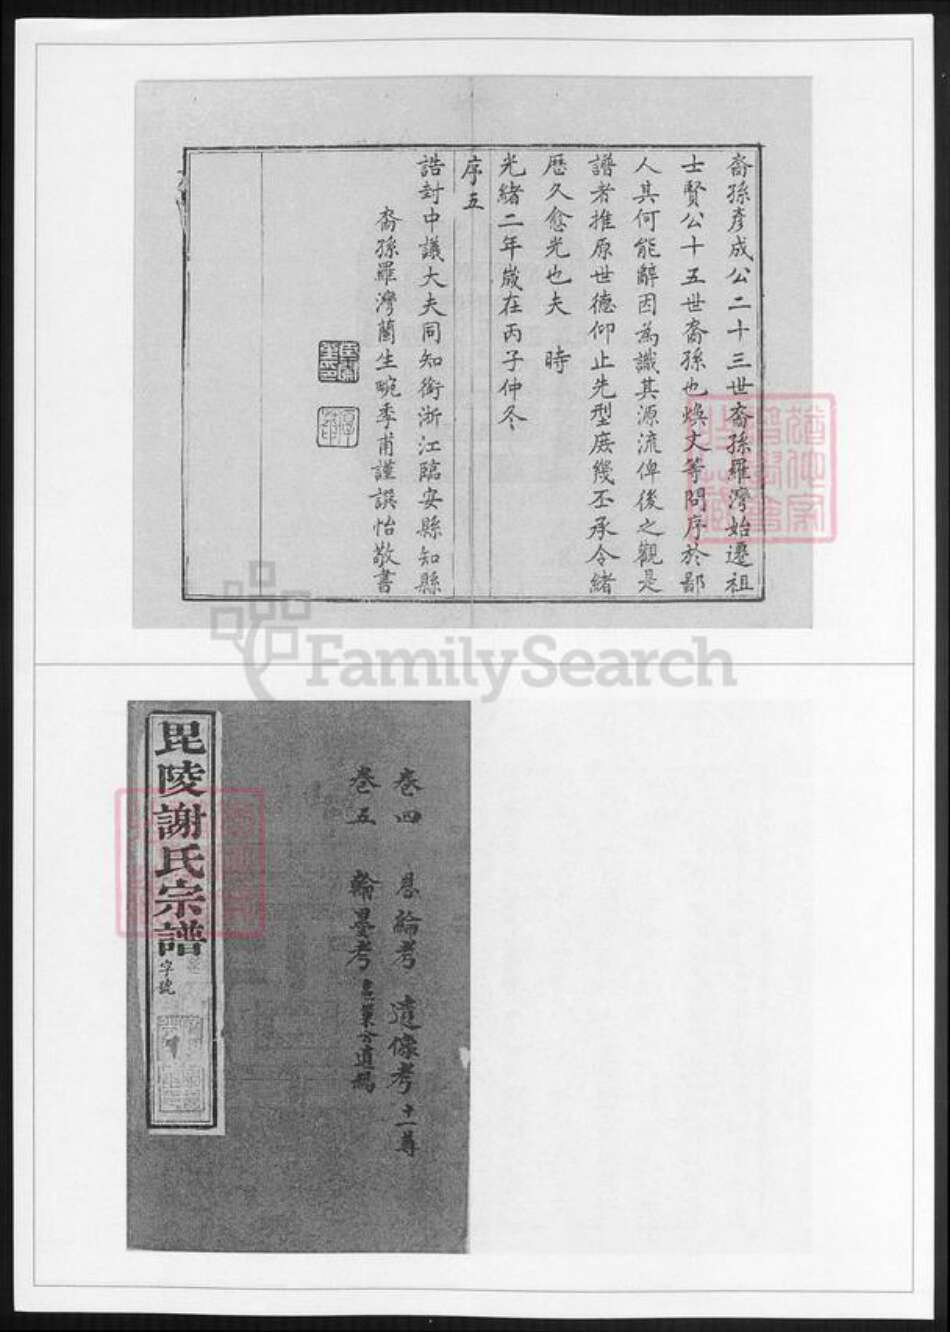 裔孫彦成公二十三世裔孫羅灣始遷祖
士賢公十五世裔孫也煥文等問序於鄙
人其何能辭因為識其源流俾後之觀是
譜者推原世德仰止先型庶幾丕承令緒
歷久愈光也夫 時
光緒二年歲在丙子仲冬
序五
誥封中議大夫同知銜浙江臨安縣知縣
裔孫羅灣蘭生畹季甫謹譔怡敬書
FamilySearch
卷四 恩綸考 遺像考 十一尊
卷五 翰墨考
毘陵謝氏宗譜
字號